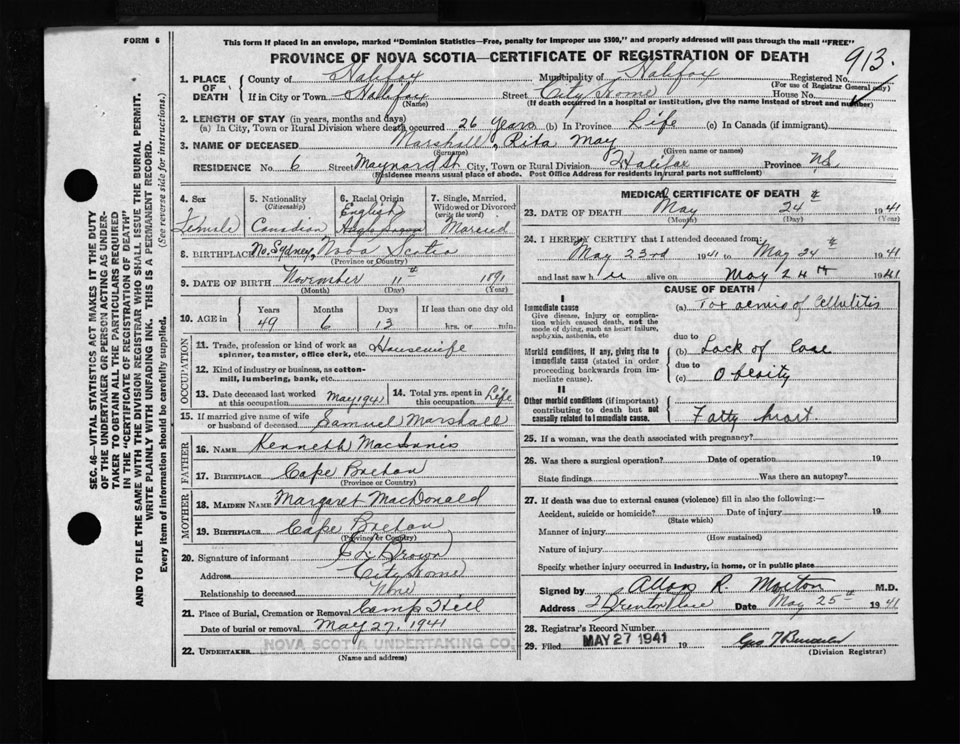 FORM 6
This form if placed in an envelope, marked "Dominion Statistics—Free, penalty for improper use $300," and properly addressed will pass through the mail "FREE"
PROVINCE OF NOVA SCOTIA—CERTIFICATE OF REGISTRATION OF DEATH
913.
1. PLACE OF DEATH
County of Halifax Municipality of Halifax Registered No.
(For use of Registrar General only)
If in City or Town Halifax Street City Home House No.
(Name) (If death occurred in a hospital or institution, give the name instead of street and number)
2. LENGTH OF STAY (in years, months and days)
(a) In City, Town or Rural Division where death occurred 26 Years (b) In Province Life (c) In Canada (if immigrant)
3. NAME OF DECEASED Marshall, Rita May
(Surname) (Given name or names)
RESIDENCE No. 6 Street Maynard St. City, Town or Rural Division Halifax Province N.S.
(Residence means usual place of abode. Post Office Address for residents in rural parts not sufficient)
4. Sex
Female
5. Nationality
(Citizenship)
Canadian
6. Racial Origin
English
7. Single, Married, Widowed or Divorced
(write the word)
Married
8. BIRTHPLACE No. Sydney, Nova Scotia
(Province or Country)
9. DATE OF BIRTH November 11th 1891
(Month) (Day) (Year)
10. AGE in Years Months Days If less than one day old
49 6 13 hrs. or min.
OCCUPATION
11. Trade, profession or kind of work as spinner, teamster, office clerk, etc. Housewife
12. Kind of industry or business, as cotton-mill, lumbering, bank, etc.
13. Date deceased last worked at this occupation May 1941
14. Total yrs. spent in this occupation Life
15. If married give name of wife or husband of deceased Samuel Marshall
FATHER
16. NAME Kenneth MacInnis
17. BIRTHPLACE Cape Breton
(Province or Country)
MOTHER
18. MAIDEN NAME Margaret MacDonald
19. BIRTHPLACE Cape Breton
(Province or Country)
20. Signature of informant Brown
Address City Home
Relationship to deceased None
21. Place of Burial, Cremation or Removal Camp Hill
Date of burial or removal May 27, 1941
22. UNDERTAKER NOVA SCOTIA UNDERTAKING CO.
(Name and address)
MEDICAL CERTIFICATE OF DEATH
23. DATE OF DEATH May 24th 1941
(Month) (Day) (Year)
24. I HEREBY CERTIFY that I attended deceased from:
May 23rd 1941 to May 24th 1941
and last saw h er alive on May 24th 1941
CAUSE OF DEATH
I
Immediate cause
Give disease, injury or complication which caused death, not the mode of dying, such as heart failure, asphyxia, asthenia, etc
(a) Toxaemia of Cellulitis
due to
Morbid conditions, if any, giving rise to immediate cause (stated in order proceeding backwards from immediate cause).
(b) Lack of Care
due to
(c) Obesity
II
Other morbid conditions (if important) contributing to death but not causally related to immediate cause.
Fatty heart
25. If a woman, was the death associated with pregnancy?
26. Was there a surgical operation? Date of operation 19
State findings Was there an autopsy?
27. If death was due to external causes (violence) fill in also the following:—
Accident, suicide or homicide? Date of injury 19
(State which)
Manner of injury
(How sustained)
Nature of injury
Specify whether injury occurred in industry, in home, or in public place
Signed by Allan R Morton M.D.
Address Date May 25th 1941
28. Registrar's Record Number
29. Filed MAY 27 1941 19
(Division Registrar)
SEC. 46—VITAL STATISTICS ACT MAKES IT THE DUTY
OF THE UNDERTAKER OR PERSON ACTING AS UNDER-
TAKER TO OBTAIN ALL THE PARTICULARS REQUIRED
IN THE "CERTIFICATE OF REGISTRATION OF DEATH"
AND TO FILE THE SAME WITH THE DIVISION REGISTRAR WHO SHALL ISSUE THE BURIAL PERMIT.
WRITE PLAINLY WITH UNFADING INK. THIS IS A PERMANENT RECORD.
Every item of information should be carefully supplied. (See reverse side for instructions.)